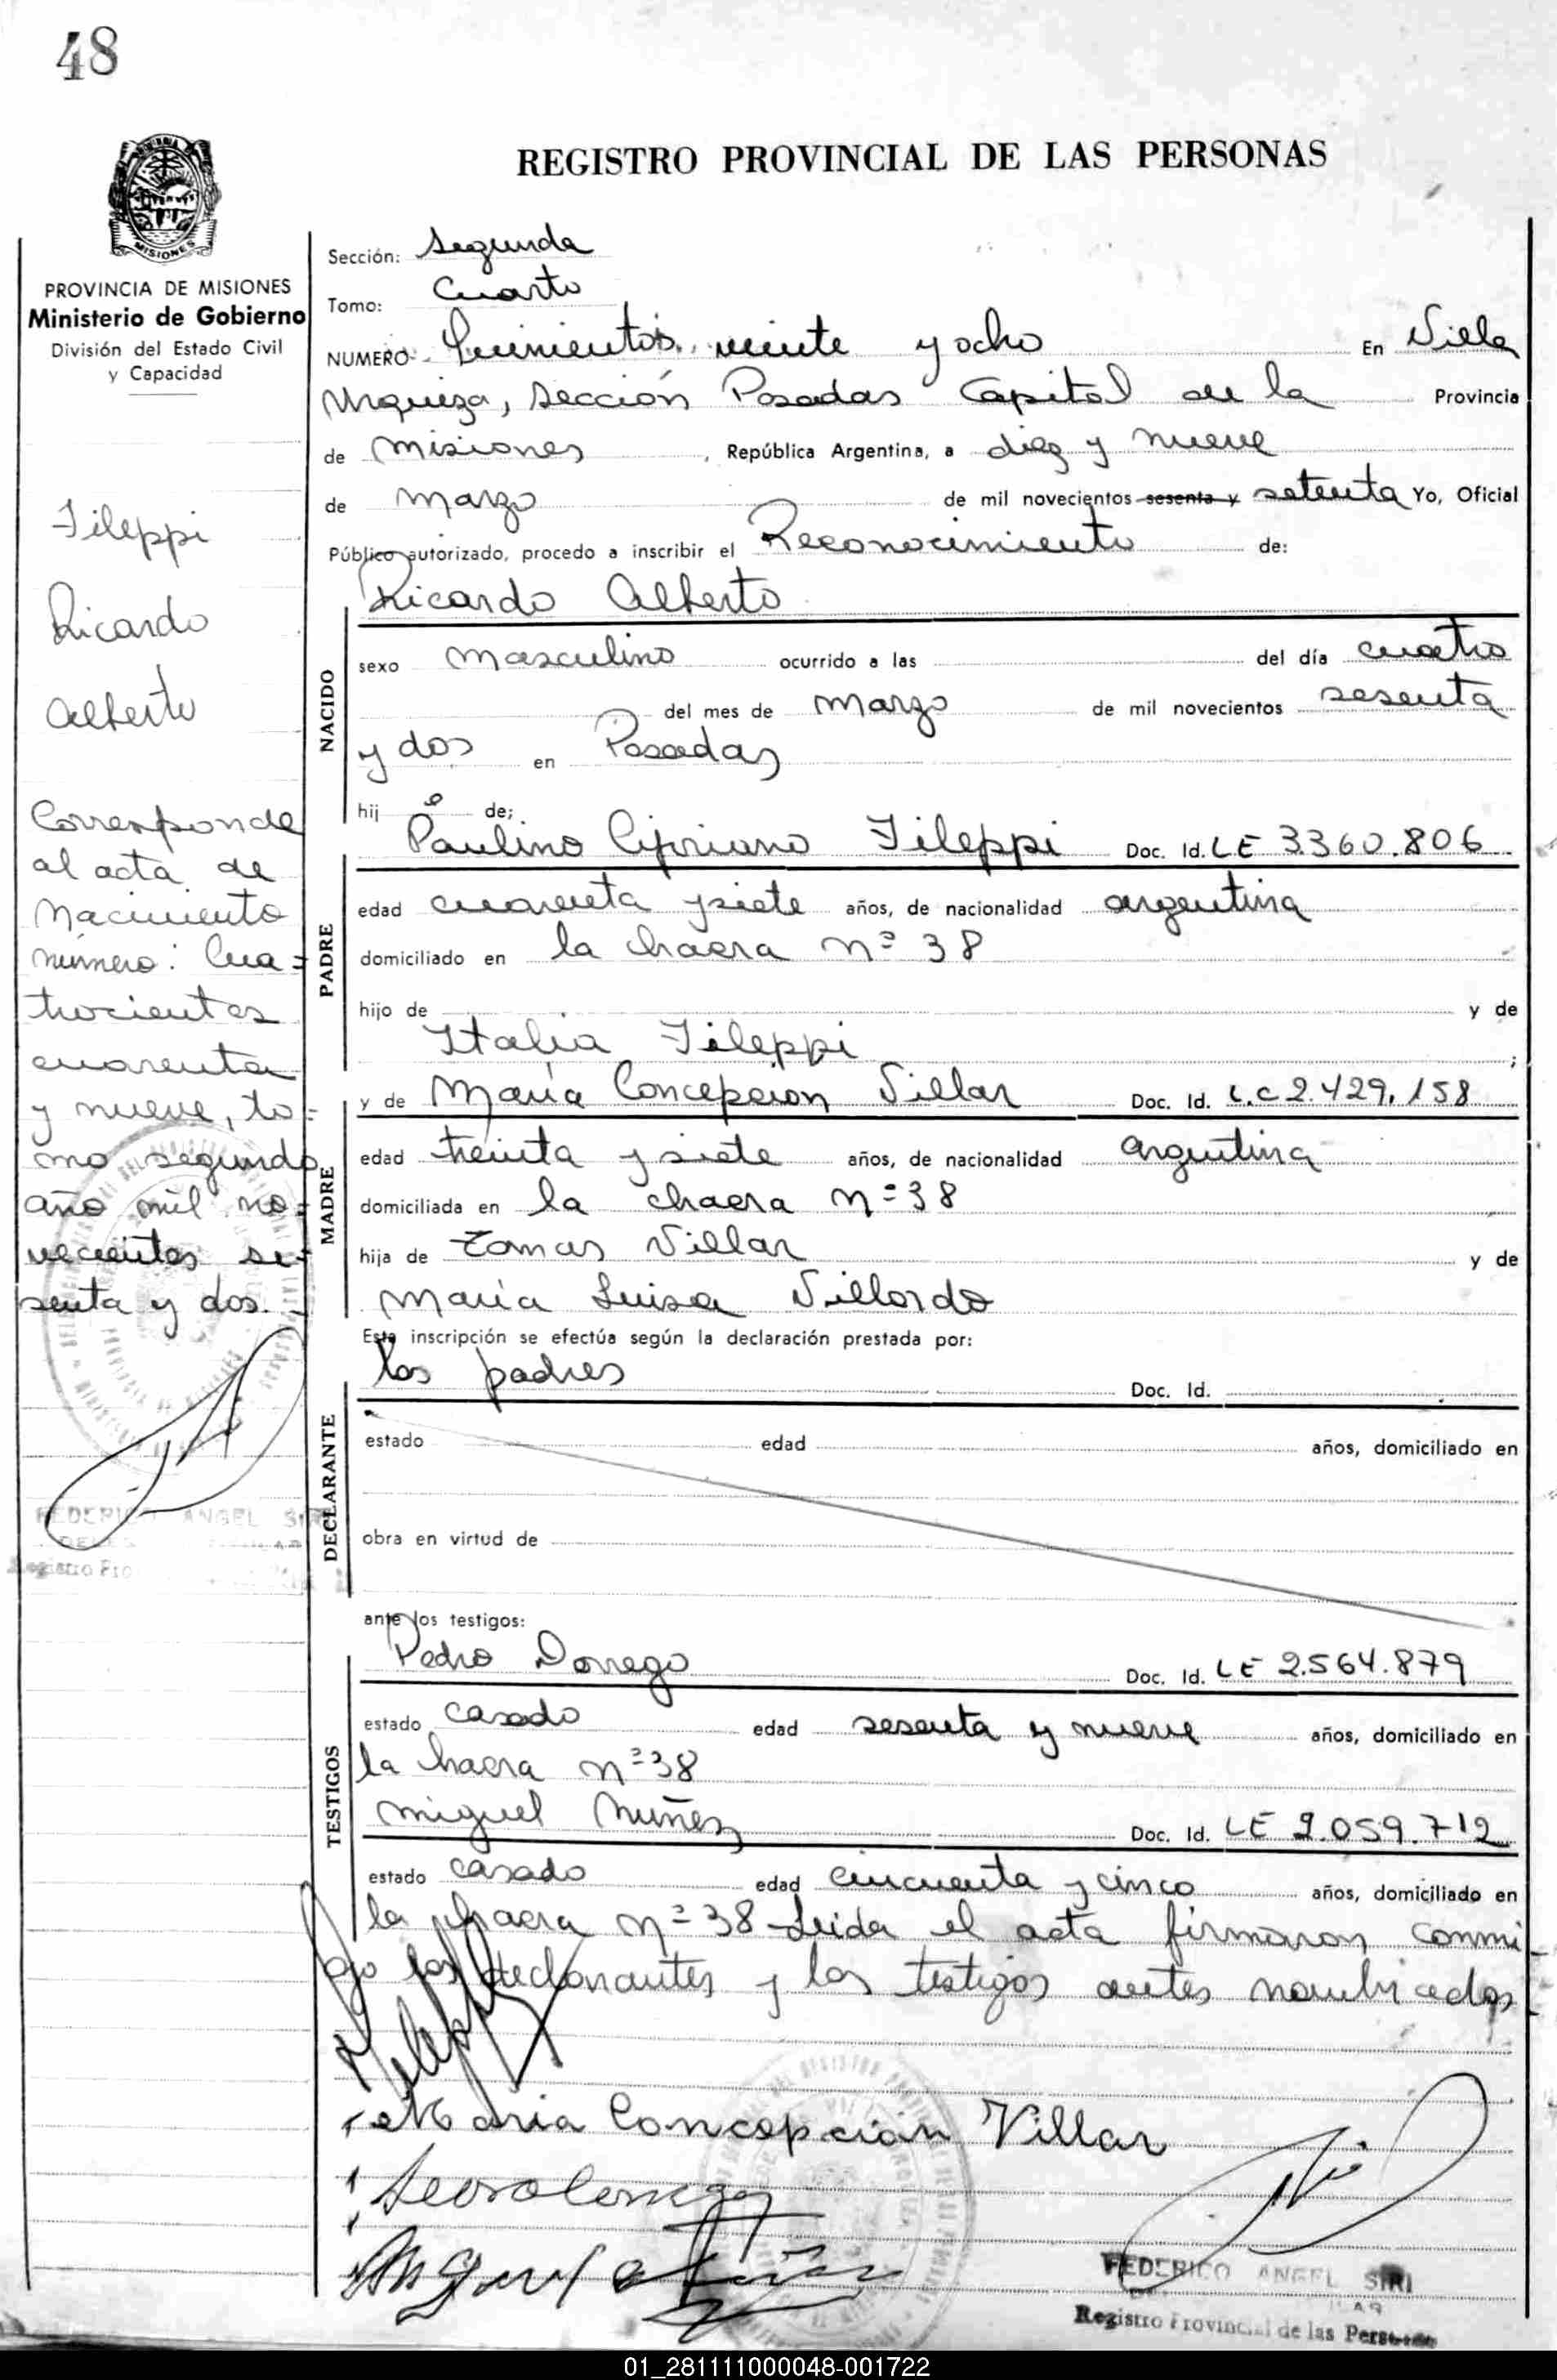 48
REGISTRO PROVINCIAL DE LAS PERSONAS
MISIONES
PROVINCIA DE MISIONES
Ministerio de Gobierno
División del Estado Civil
y Capacidad
Fileppi
Ricardo
Alberto
Corresponde
al acta de
Nacimiento
número: Cua=
trocientos
cuarenta
y nueve, to=
mo segundo
año mil no=
vecientos se=
senta y dos.
FEDERICO ANGEL SIRI
Registro Pro
Sección: Segunda
Tomo: Cuarto
NUMERO: Quinientos veinte y ocho En Villa
Urquiza, Sección Posadas Capital de la Provincia
de Misiones, República Argentina, a diez y nueve
de Marzo de mil novecientos sesenta y setenta Yo, Oficial
Público autorizado, procedo a inscribir el Reconocimiento de:
Ricardo Alberto
NACIDO
sexo masculino ocurrido a las del día cuatro
del mes de Marzo de mil novecientos sesenta
y dos en Posadas
hij o de;
Paulino Cipriano Fileppi Doc. Id. LE 3360.806
PADRE
edad cuarenta y siete años, de nacionalidad argentina
domiciliado en la chacra nº 38
hijo de y de
Italia Fileppi ;
y de María Concepcion Villar Doc. Id. L.C 2.429.158
MADRE
edad treinta y siete años, de nacionalidad argentina
domiciliada en la chacra nº 38
hija de Tomas Villar y de
María Luisa Villordo
Esta inscripción se efectúa según la declaración prestada por:
los padres Doc. Id.
DECLARANTE
estado edad años, domiciliado en
obra en virtud de
ante los testigos:
Pedro Dorrego Doc. Id. LE 2.564.879
TESTIGOS
estado casado edad sesenta y nueve años, domiciliado en
la chacra nº 38
Miguel Nuñez Doc. Id. LE 2.059.712
estado casado edad cincuenta y cinco años, domiciliado en
la chacra nº 38 Leida el acta firmaron conmi=
go los declarantes y los testigos antes nombrados
Fileppi
Maria Concepción Villar
FEDERICO ANGEL SIRI
Registro Provincial de las Personas
01_281111000048-001722